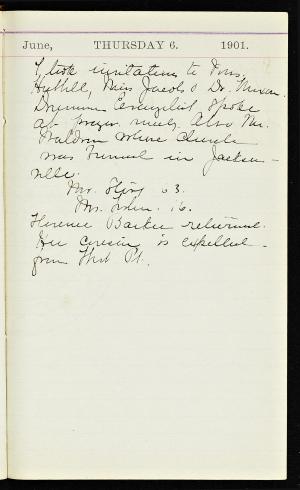 June, THURSDAY 6. 1901.
I took invitations to Mrs.
Hubbell, Miss Jacobs & Dr.
Evangelist spoke
at prayer meet'g. Also Mr.
Waldron whose church
was burned in Jackson-
ville.
Mr. .63.
Mrs. .16.
Florence Barker returned.
Her cousin is expelled
from West Pt.